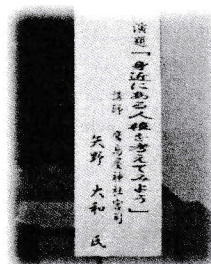 演題「身近にある人権を考えてみよう」
講師 飛鳥坐神社宮司
矢野 大和 氏